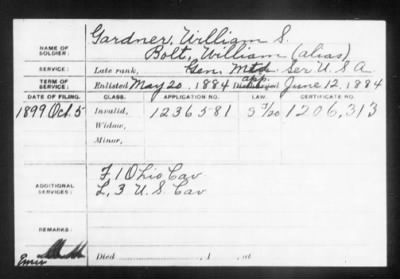 Gardner, William S.
NAME OF SOLDIER: Bolt, William (alias)
SERVICE: Late rank, Gen. Mtd. Ser U.S.A
TERM OF SERVICE: Enlisted May 20, 1884 June 12, 1884
DATE OF FILING. CLASS. APPLICATION NO. LAW. CERTIFICATE NO.
1899 Oct. 5 Invalid, 1236581 1206,313
Widow,
Minor,
ADDITIONAL SERVICES: F, 1 Ohio Cav
L, 3 U.S. Cav
REMARKS:
Died , 1 , at